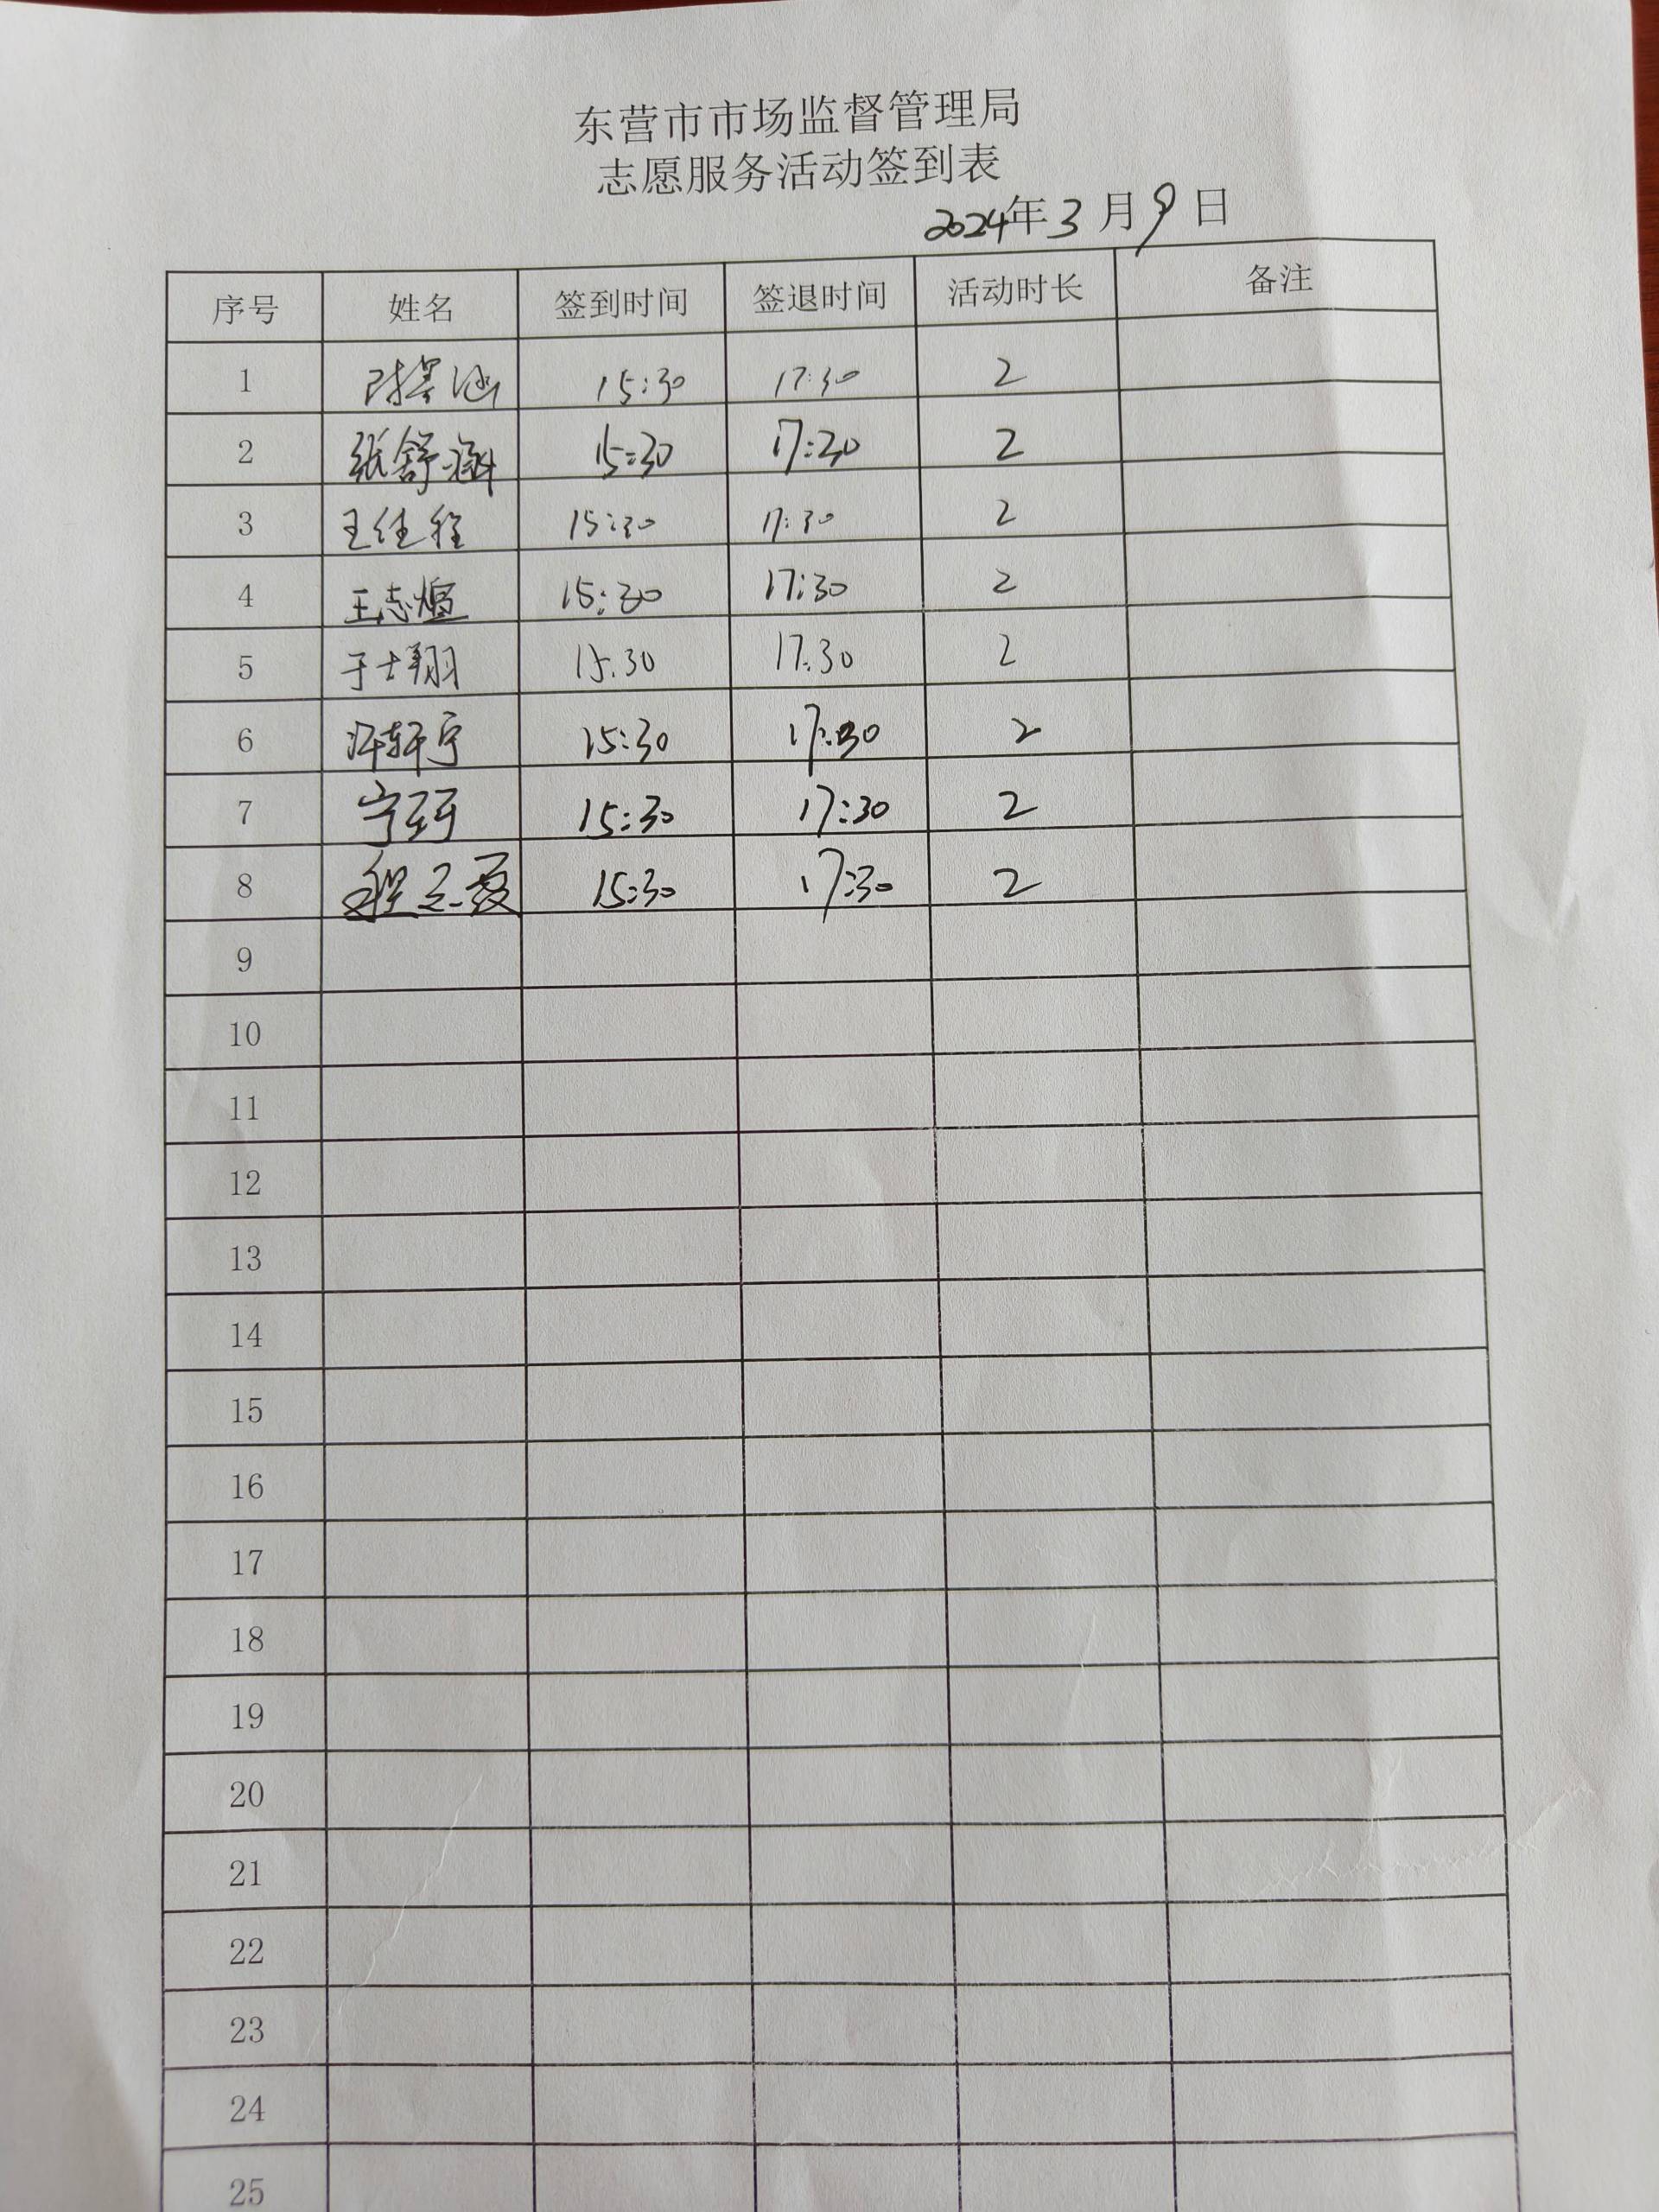 东营市市场监督管理局
志愿服务活动签到表
2024年3月9日
序号 姓名 签到时间 签退时间 活动时长 备注
1 15:30 17:30 2
2 张舒涵 15:30 17:30 2
3 王佳程 15:30 17:30 2
4 王志煊 15:30 17:30 2
5 于士翔 15:30 17:30 2
6 许轩宁 15:30 17:30 2
7 15:30 17:30 2
8 15:30 17:30 2
9
10
11
12
13
14
15
16
17
18
19
20
21
22
23
24
25